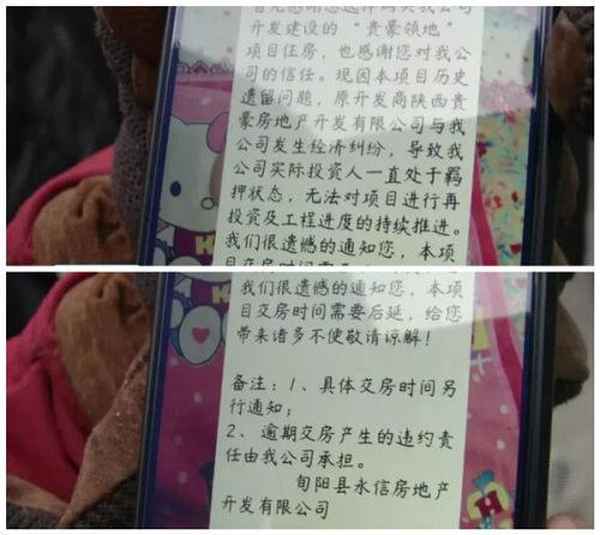 开发建设的“贵豪领地”
项目住房，也感谢您对我公
司的信任。现因本项目历史
遗留问题，原开发商陕西贵
豪房地产开发有限公司与我
公司发生经济纠纷，导致我
公司实际投资人一直处于羁
押状态，无法对项目进行再
投资及工程进度的持续推进。
我们很遗憾的通知您，本项
我们很遗憾的通知您，本项
目交房时间需要后延，给您
带来诸多不便敬请谅解！
备注：1、具体交房时间另
行通知；
2、逾期交房产生的违约责
任由我公司承担。
旬阳县永信房地产
开发有限公司